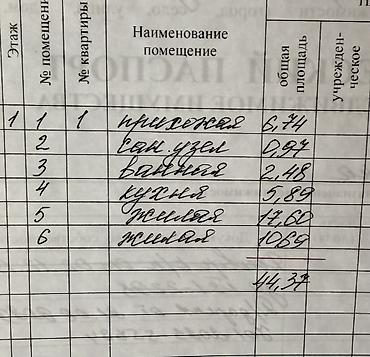 Этаж № помещения № квартиры Наименование помещение общая площадь учрежден- ческое
1 1 1 прихожая 6,74
2 сан. узел 0,97
3 ванная 2,48
4 кухня 5,89
5 жилая 17,60
6 жилая 10,69
44,37